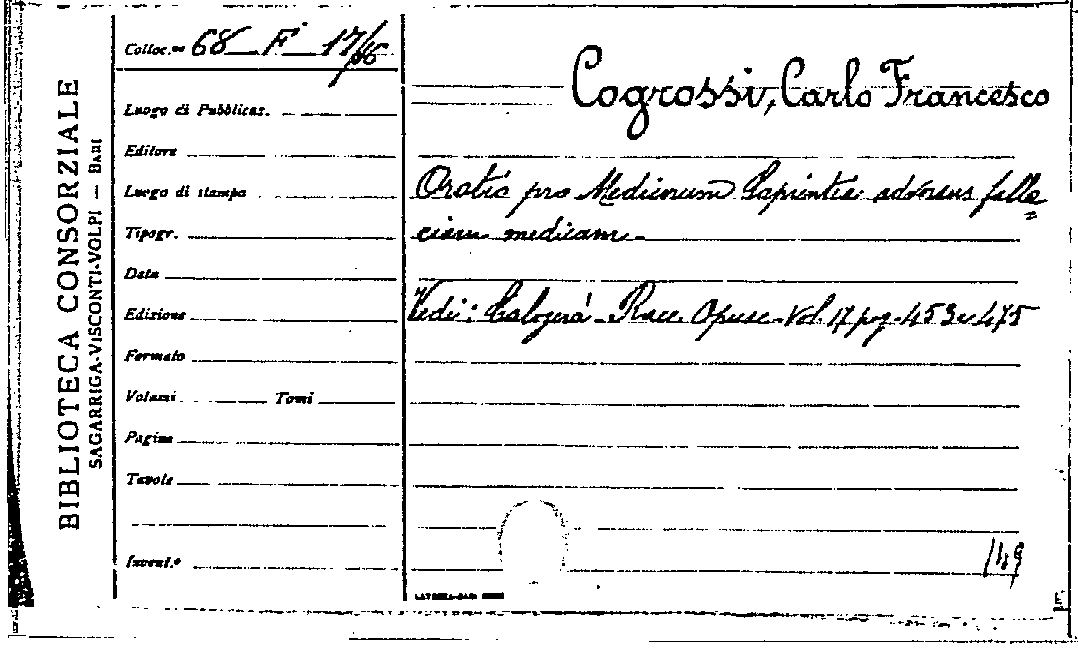 BIBLIOTECA CONSORZIALE
SAGARRIGA-VISCONTI-VOLPI — BARI
Colloc.ne 68 F 17/
Luogo di Pubblicaz.
Editore
Luogo di stampa
Tipogr.
Data
Edizione
Formato
Volumi Tomi
Pagine
Tavole
Invent.º
Cogrossi, Carlo Francesco
Oratio pro Medicorum Sapientia adversus falla=
ciam medicam.
Vedi: Calogerà - Racc. Opusc. Vol. 17 pag. 453 475
149